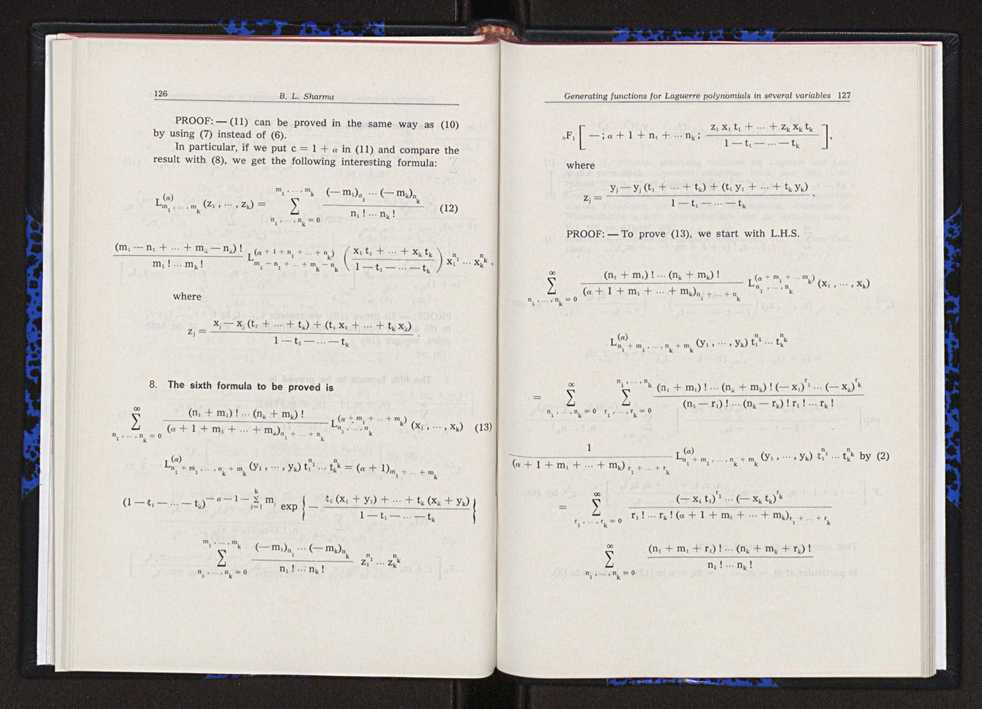 126 B. L. Sharma
PROOF: — (11) can be proved in the same way as (10)
by using (7) instead of (6).
In particular, if we put c = 1 + α in (11) and compare the
result with (8), we get the following interesting formula:
L^{(α)}_{m_1, ..., m_k} (z_1, ..., z_k) = \sum_{n_1, ..., n_k = 0}^{m_1, ..., m_k} \frac{(—m_1)_{n_1} ... (—m_k)_{n_k}}{n_1! ... n_k!} (12)
\frac{(m_1 — n_1 + ... + m_k — n_k)!}{m_1! ... m_k!} L^{(α + 1 + n_1 + ... + n_k)}_{m_1 — n_1 + ... + m_k — n_k} \left( \frac{x_1 t_1 + ... + x_k t_k}{1 — t_1 — ... — t_k} \right) x_1^{n_1} ... x_k^{n_k},
where
z_j = \frac{x_j — x_j (t_1 + ... + t_k) + (t_1 x_1 + ... + t_k x_k)}{1 — t_1 — ... — t_k}.
8. The sixth formula to be proved is
\sum_{n_1, ..., n_k = 0}^{∞} \frac{(n_1 + m_1)! ... (n_k + m_k)!}{(α + 1 + m_1 + ... + m_k)_{n_1 + ... + n_k}} L^{(α + m_1 + ... + m_k)}_{n_1, ..., n_k} (x_1, ..., x_k) (13)
L^{(α)}_{n_1 + m_1, ..., n_k + m_k} (y_1, ..., y_k) t_1^{n_1} ... t_k^{n_k} = (α + 1)_{m_1 + ... + m_k}
(1 — t_1 — ... — t_k)^{— α — 1 — \sum_{j=1}^{k} m_j} exp \left\{ — \frac{t_1 (x_1 + y_1) + ... + t_k (x_k + y_k)}{1 — t_1 — ... — t_k} \right\}
\sum_{n_1, ..., n_k = 0}^{m_1, ..., m_k} \frac{(—m_1)_{n_1} ... (—m_k)_{n_k}}{n_1! ... n_k!} z_1^{n_1} ... z_k^{n_k}
Generating functions for Laguerre polynomials in several variables 127
_0F_1 \left[ —; α + 1 + n_1 + ... n_k; \frac{z_1 x_1 t_1 + ... + z_k x_k t_k}{1 — t_1 — ... — t_k} \right],
where
z_j = \frac{y_j — y_j (t_1 + ... + t_k) + (t_1 y_1 + ... + t_k y_k)}{1 — t_1 — ... — t_k}.
PROOF: — To prove (13), we start with L.H.S.
\sum_{n_1, ..., n_k = 0}^{∞} \frac{(n_1 + m_1)! ... (n_k + m_k)!}{(α + 1 + m_1 + ... + m_k)_{n_1 + ... + n_k}} L^{(α + m_1 + ... m_k)}_{n_1, ..., n_k} (x_1, ..., x_k)
L^{(α)}_{n_1 + m_1, ..., n_k + m_k} (y_1, ..., y_k) t_1^{n_1} ... t_k^{n_k}
= \sum_{n_1, ..., n_k = 0}^{∞} \sum_{r_1, ..., r_k = 0}^{n_1, ..., n_k} \frac{(n_1 + m_1)! ... (n_k + m_k)! (— x_1)^{r_1} ... (— x_k)^{r_k}}{(n_1 — r_1)! ... (n_k — r_k)! r_1! ... r_k!}
\frac{1}{(α + 1 + m_1 + ... + m_k)_{r_1 + ... + r_k}} L^{(α)}_{n_1 + m_1, ..., n_k + m_k} (y_1, ..., y_k) t_1^{n_1} ... t_k^{n_k} by (2)
= \sum_{r_1, ..., r_k = 0}^{∞} \frac{(— x_1 t_1)^{r_1} ... (— x_k t_k)^{r_k}}{r_1! ... r_k! (α + 1 + m_1 + ... + m_k)_{r_1 + ... + r_k}}
\sum_{n_1, ..., n_k = 0}^{∞} \frac{(n_1 + m_1 + r_1)! ... (n_k + m_k + r_k)!}{n_1! ... n_k!}